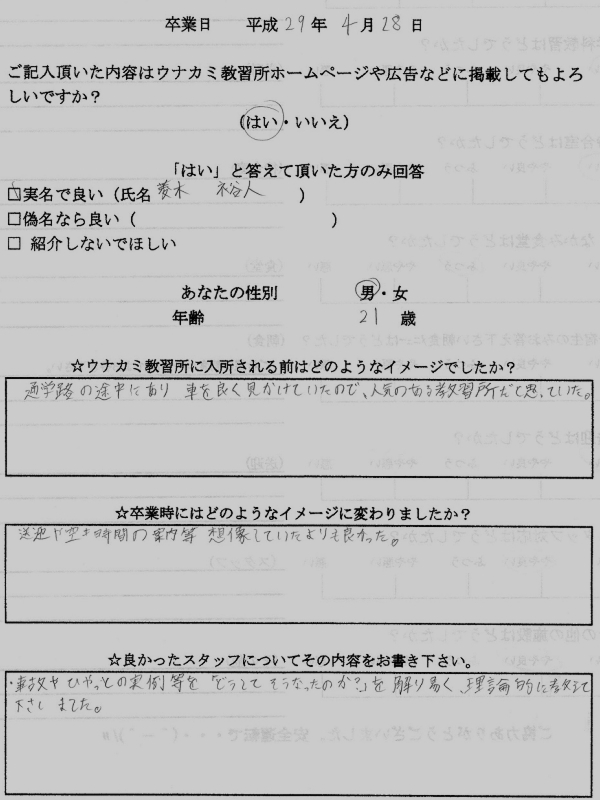 卒業日 平成29年4月28日
ご記入頂いた内容はウナカミ教習所ホームページや広告などに掲載してもよろ
しいですか？
（はい・いいえ）
「はい」と答えて頂いた方のみ回答
□実名で良い（氏名 菱木 裕人 ）
□偽名なら良い（ ）
□ 紹介しないでほしい
あなたの性別 男・女
年齢 21 歳
☆ウナカミ教習所に入所される前はどのようなイメージでしたか？
通学路の途中にあり 車を良く見かけていたので、人気のある教習所だと思っていた。
☆卒業時にはどのようなイメージに変わりましたか？
送迎や空き時間の案内等 想像していたよりも良かった。
☆良かったスタッフについてその内容をお書き下さい。
・事故やひやっとの実例等を「どうしてそうなったのか？」を解り易く、理論的に教えて
下さしました。